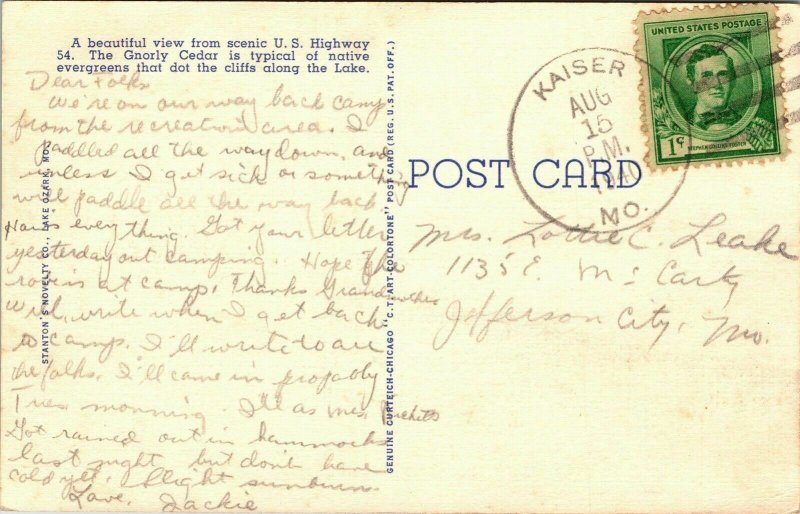 A beautiful view from scenic U. S. Highway
54. The Gnorly Cedar is typical of native
evergreens that dot the cliffs along the Lake.
Dear Folks
We're on our way back camp
from the recreation area. I
paddled all the way down, and
unless I get sick or something
will paddle all the way back
How's everything. Got your letter
yesterday out camping. Hope the
is at camp. Thanks Grandmother
Will write when I get back
to camp. I'll write to all
the folks. I'll come in propably
Tues morning. I'll as Mrs. Ricketts
Got rained out in hammocks
last night but don't have
cold yet. Slight sunburn
Love, Jackie
STANTON'S NOVELTY CO., LAKE OZARK, MO.
GENUINE CURTEICH-CHICAGO "C.T. ART-COLORTONE" POST CARD (REG. U.S. PAT. OFF.)
POST CARD
KAISER
AUG
15
P.M.
1940
MO.
UNITED STATES POSTAGE
1¢
STEPHEN COLLINS FOSTER
Mrs. Lottie C. Leake
1135 E. McCarty
Jefferson City, Mo.